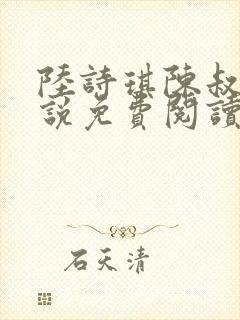 陸詩琪陳叔
說免費閱讀
石天清